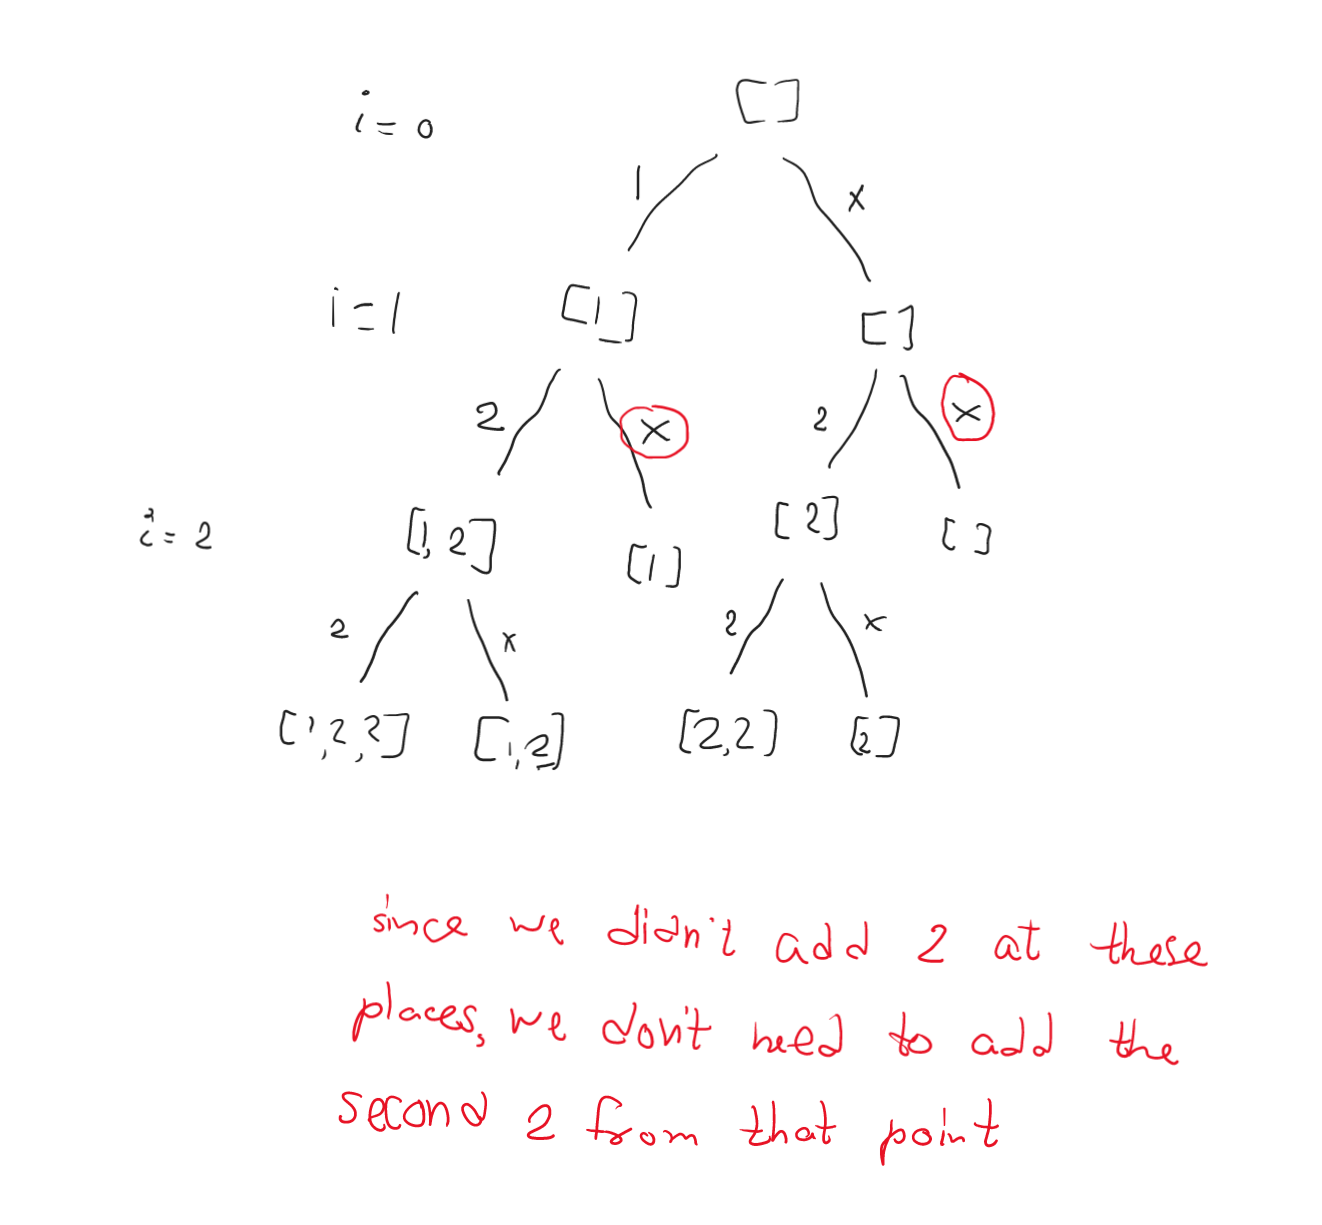 i = 0 []
1 x
i = 1 [1] []
2 x 2 x
i = 2 [1, 2] [1] [2] []
2 x 2 x
[1,2,2] [1,2] [2,2] [2]
since we didn't add 2 at these
places, we don't need to add the
second 2 from that point